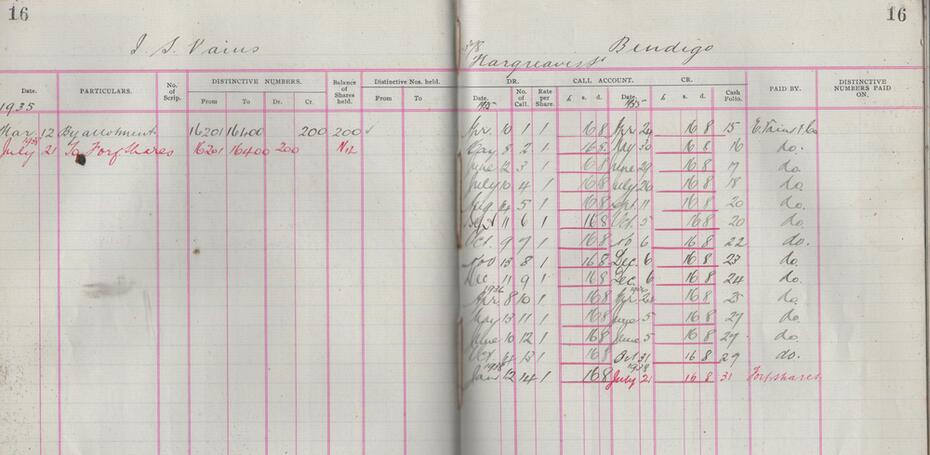 16
16
J. S. Vains
378
Bendigo
Hargreaves St
Date. PARTICULARS. No. of Scrip. DISTINCTIVE NUMBERS. From To Dr. Cr. Balance of Shares held. Distinctive Nos. held. From To
DR. CALL ACCOUNT. CR.
Date. No. of Call. Rate per Share. £ s. d. Date. £ s. d. Cash Folio. PAID BY. DISTINCTIVE NUMBERS PAID ON.
1935
1935 1935
Mar. 12 By allotment 16201 16400 200 200
1938
July 21 To Forf Shares 16201 16400 200 Nil
Apr. 10 1 1 16 8 Apr 24 16 8 15 E. Vains & Co
May 8 2 1 16 8 May 30 16 8 16 do.
June 12 3 1 16 8 June 29 16 8 17 do
July 10 4 1 16 8 July 26 16 8 18 do.
Aug 5 1 16 8 Sept 11 16 8 20 do.
Sept 11 6 1 16 8 Oct. 5 16 8 20 do.
Oct. 9 7 1 16 8 6 16 8 22 do.
Nov 13 8 1 16 8 Dec. 6 16 8 23 do
Dec 11 9 1 16 8 Dec. 6 16 8 24 do.
1936 1936
Apr. 8 10 1 16 8 Apr 16 8 25 do
May 13 11 1 16 8 June 5 16 8 27 do.
June 10 12 1 16 8 June 5 16 8 27 do.
Oct 13 1 16 8 Oct 31 16 8 29 do.
1938 1938
Jan 12 14 1 16 8 July 21 16 8 31 Forf shares